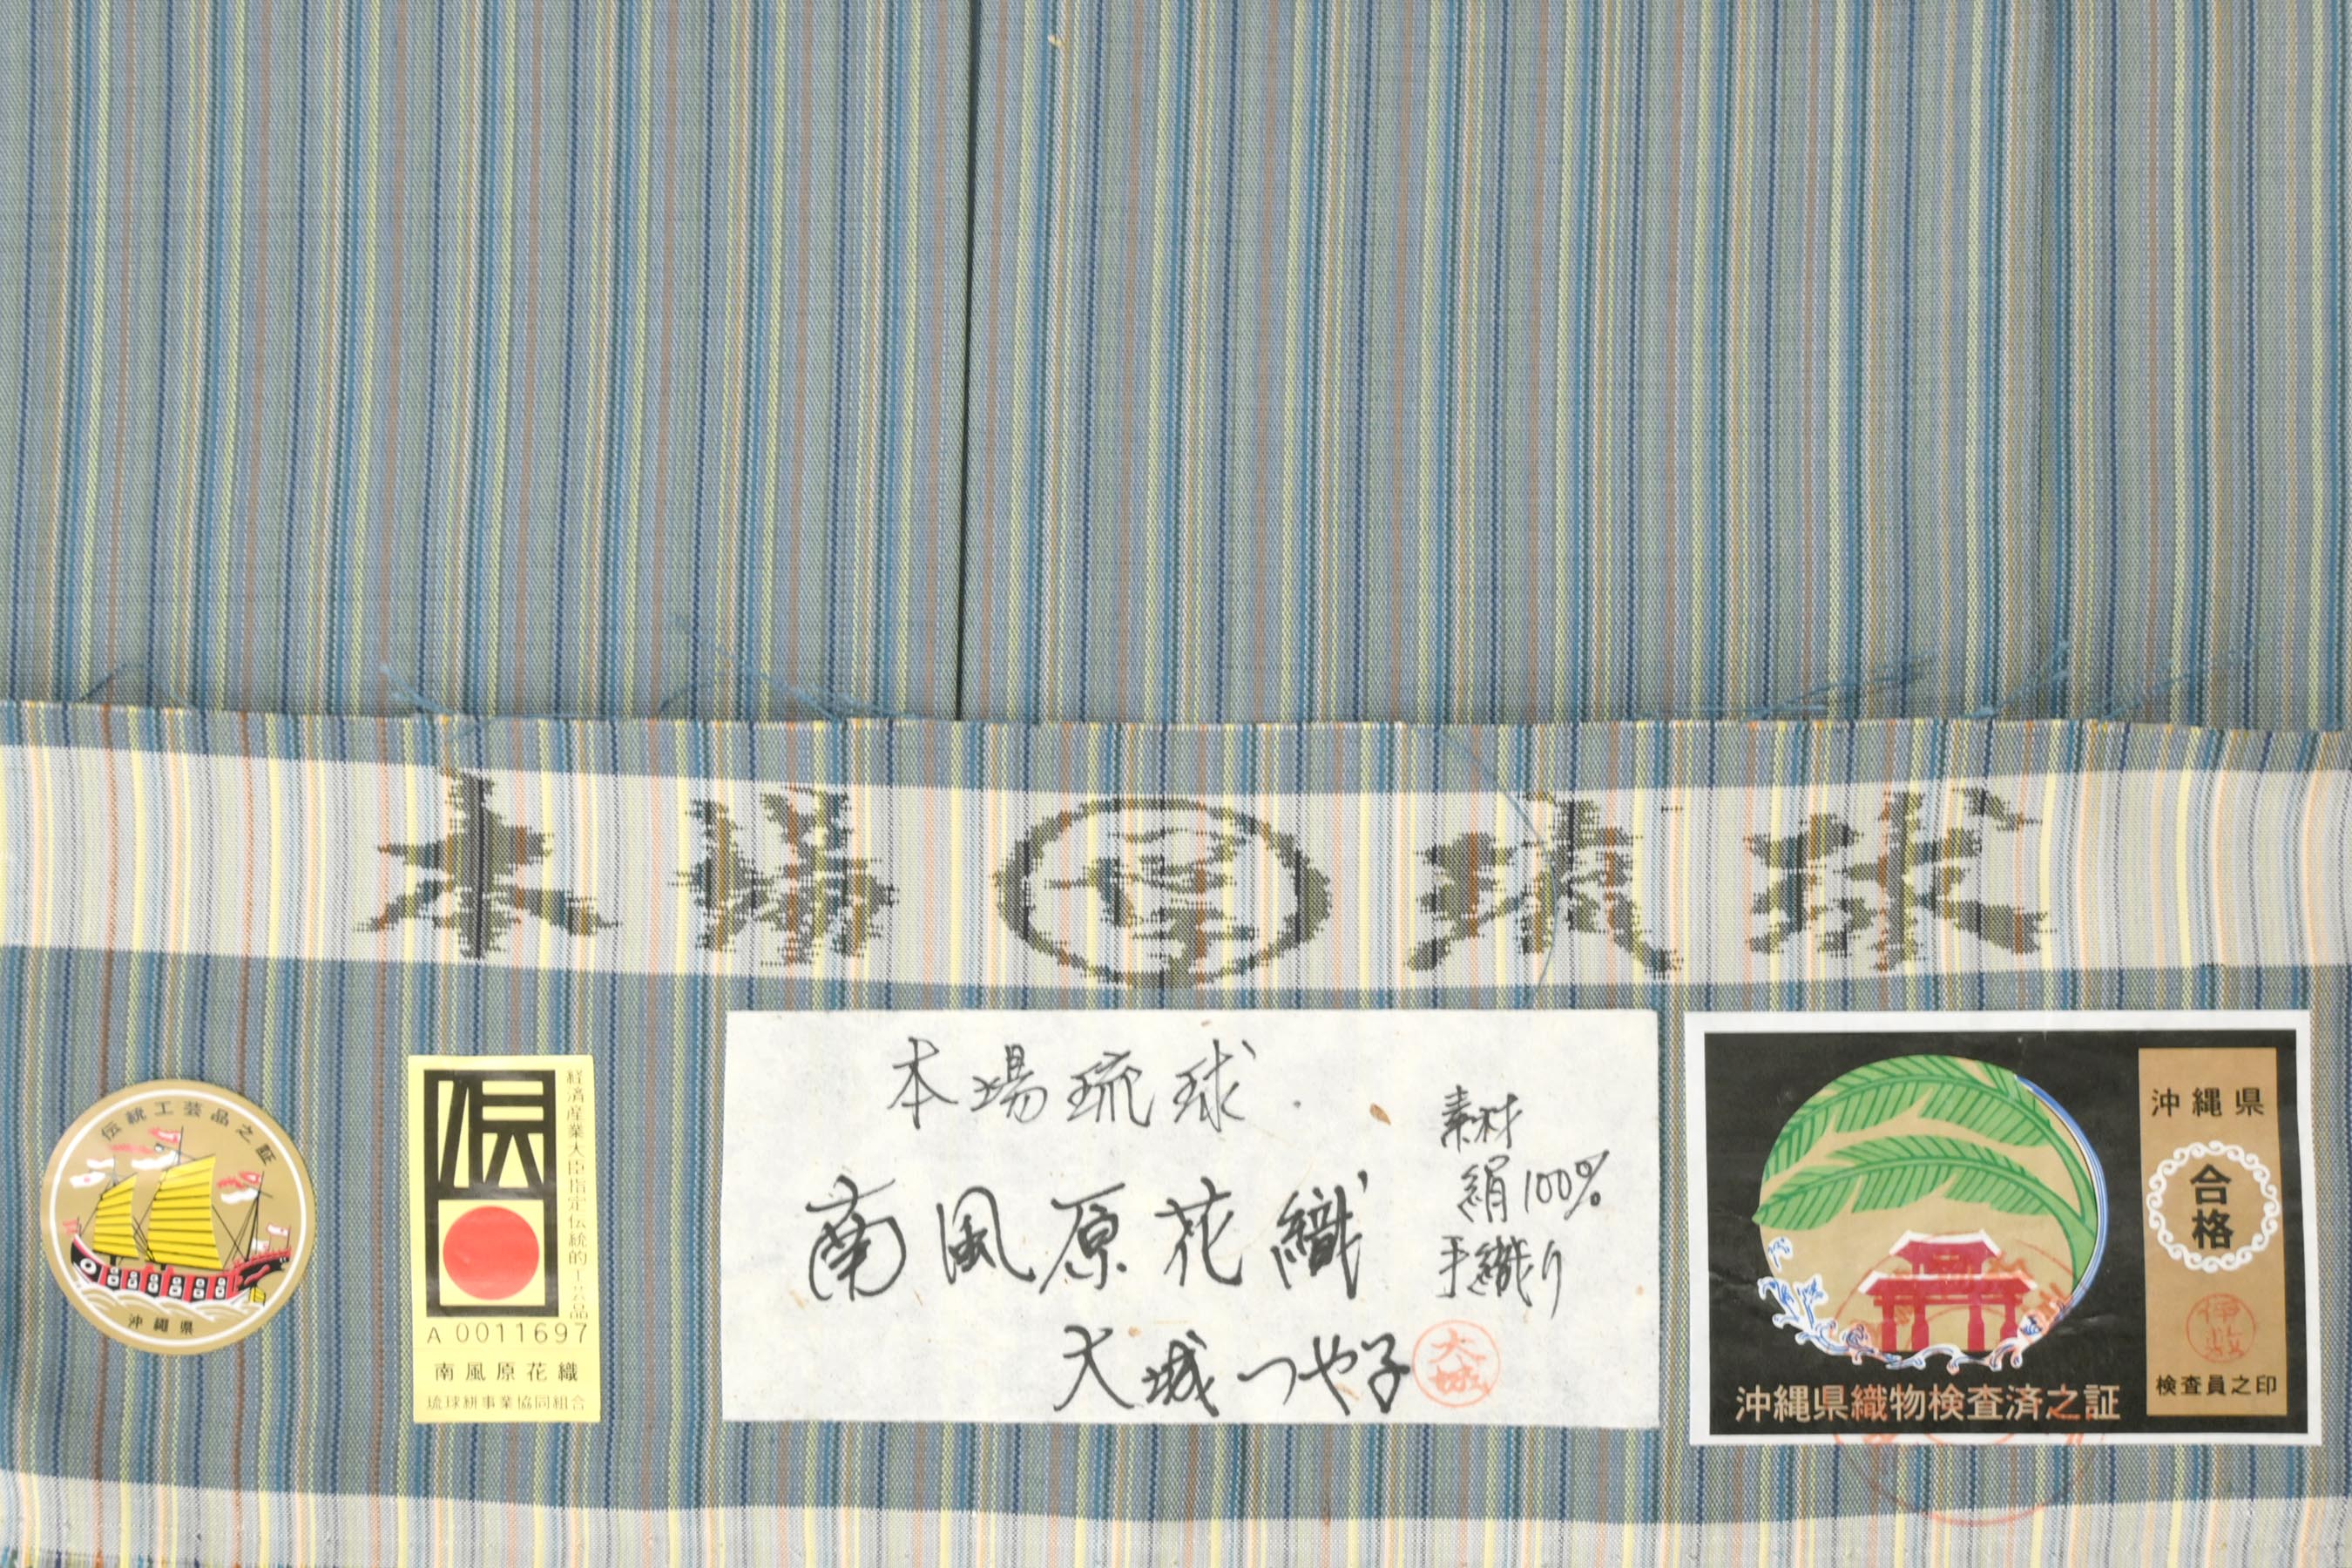 本場琉球
伝統工芸品之証
沖縄県
伝
経済産業大臣指定伝統的工芸品
A 0011697
南風原花織
琉球絣事業協同組合
本場琉球.
南風原花織
大城つや子
大城
素材
絹100%
手織り
沖縄県織物検査済之証
沖縄県
合格
検査員之印